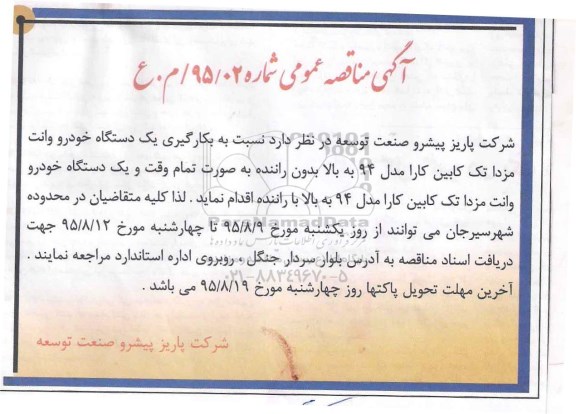 آگهی مناقصه عمومی شماره ۹۵/۰۲/م.ع
شرکت پاریز پیشرو صنعت توسعه در نظر دارد نسبت به بکارگیری یک دستگاه خودرو وانت
مزدا تک کابین کارا مدل ۹۴ به بالا بدون راننده به صورت تمام وقت و یک دستگاه خودرو
وانت مزدا تک کابین کارا مدل ۹۴ به بالا با راننده اقدام نماید . لذا کلیه متقاضیان در محدوده
ParsNamadData
شهرسیرجان می توانند از روز یکشنبه مورخ ۹۵/۸/۹ تا چهارشنبه مورخ ۹۵/۸/۱۲ جهت
دریافت اسناد مناقصه به آدرس بلوار سردار جنگل ، روبروی اداره استاندارد مراجعه نمایند .
۰۲۱-۸۸۳۴۹۶۷۰-۵
آخرین مهلت تحویل پاکتها روز چهارشنبه مورخ ۹۵/۸/۱۹ می باشد .
شرکت پاریز پیشرو صنعت توسعه